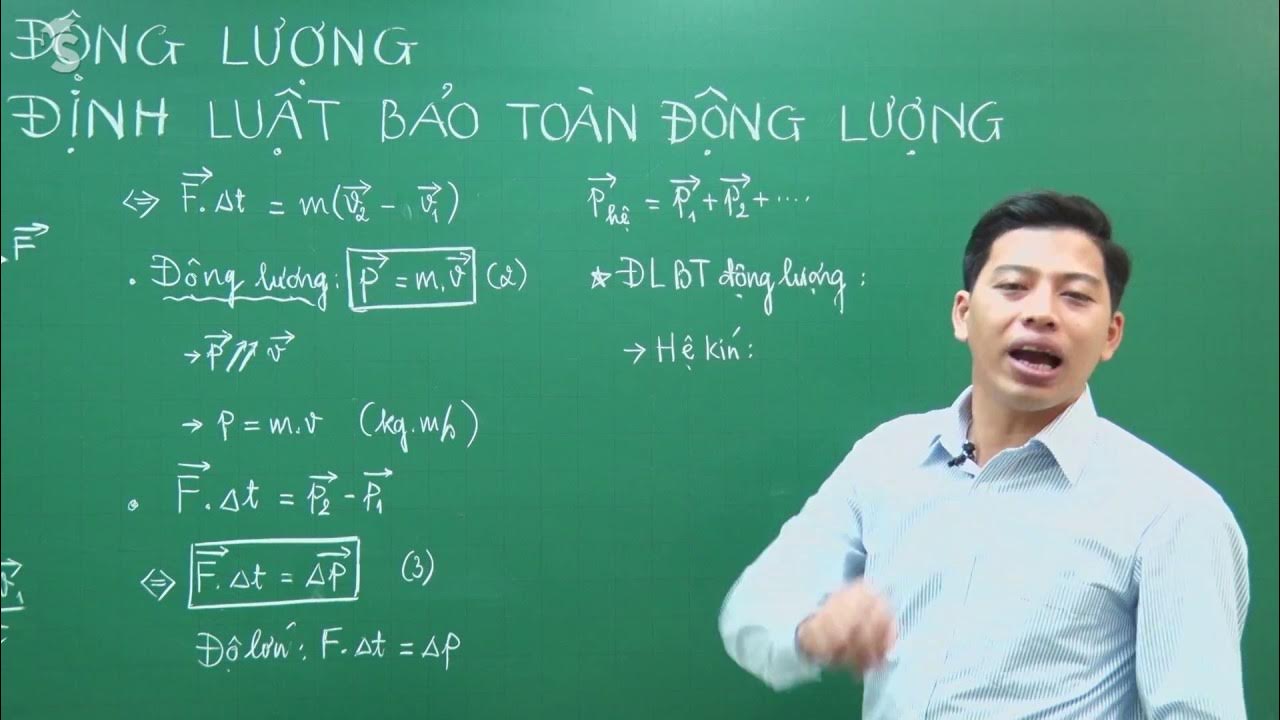 ĐỘNG LƯỢNG
ĐỊNH LUẬT BẢO TOÀN ĐỘNG LƯỢNG
F⃗
⇔ F⃗.Δt = m(v⃗₂ - v⃗₁)
• Động lượng: p⃗ = m.v⃗ (2)
→ p⃗ ⇈ v⃗
→ p = m.v (kg.m/s)
• F⃗.Δt = p⃗₂ - p⃗₁
⇔ F⃗.Δt = Δp⃗ (3)
Độ lớn: F.Δt = Δp
v⃗₁
p⃗hệ = p⃗₁ + p⃗₂ + ....
* ĐLBT động lượng :
→ Hệ kín :